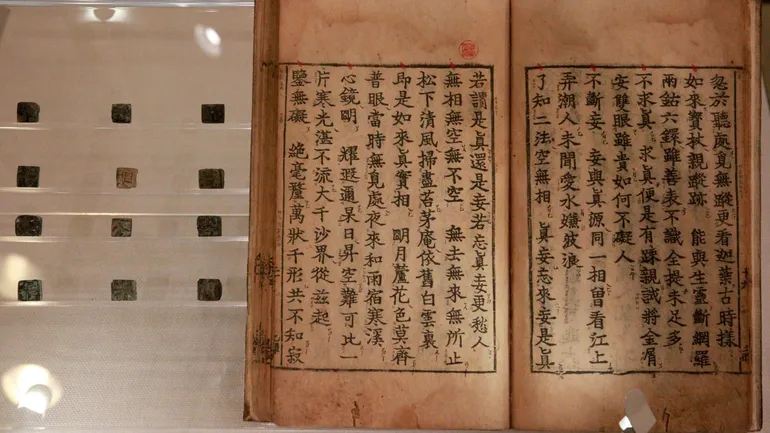 忽六聽處覓無蹤更看迦葉古時樣
如來寶杖親蹤跡 能與生靈斷網羅
兩鈷六鐶雖善表不識全提未足多
不求眞 求眞便是有踈親識將金屑
安雙眼雖貴如何不礙人
不斷妄 妄與眞源同一相留看江上
弄潮人未聞愛水嫌波浪
了知二法空無相 眞妄忘來妄是眞
若謂是眞還是妄若忘眞妄更愁人
無相無空無不空 無去無來無所止
松下清風掃盡苔茅庵依舊白雲裏
即是如來眞實相 明月蘆花色莫齊
普眼當時無覓處夜來和雨宿寒溪
心鏡明 耀遐邇杲日昇空難可比一
片寒光湛不流大千沙界從茲起
鑒無礙 絕毫釐萬狀千形共不知寂